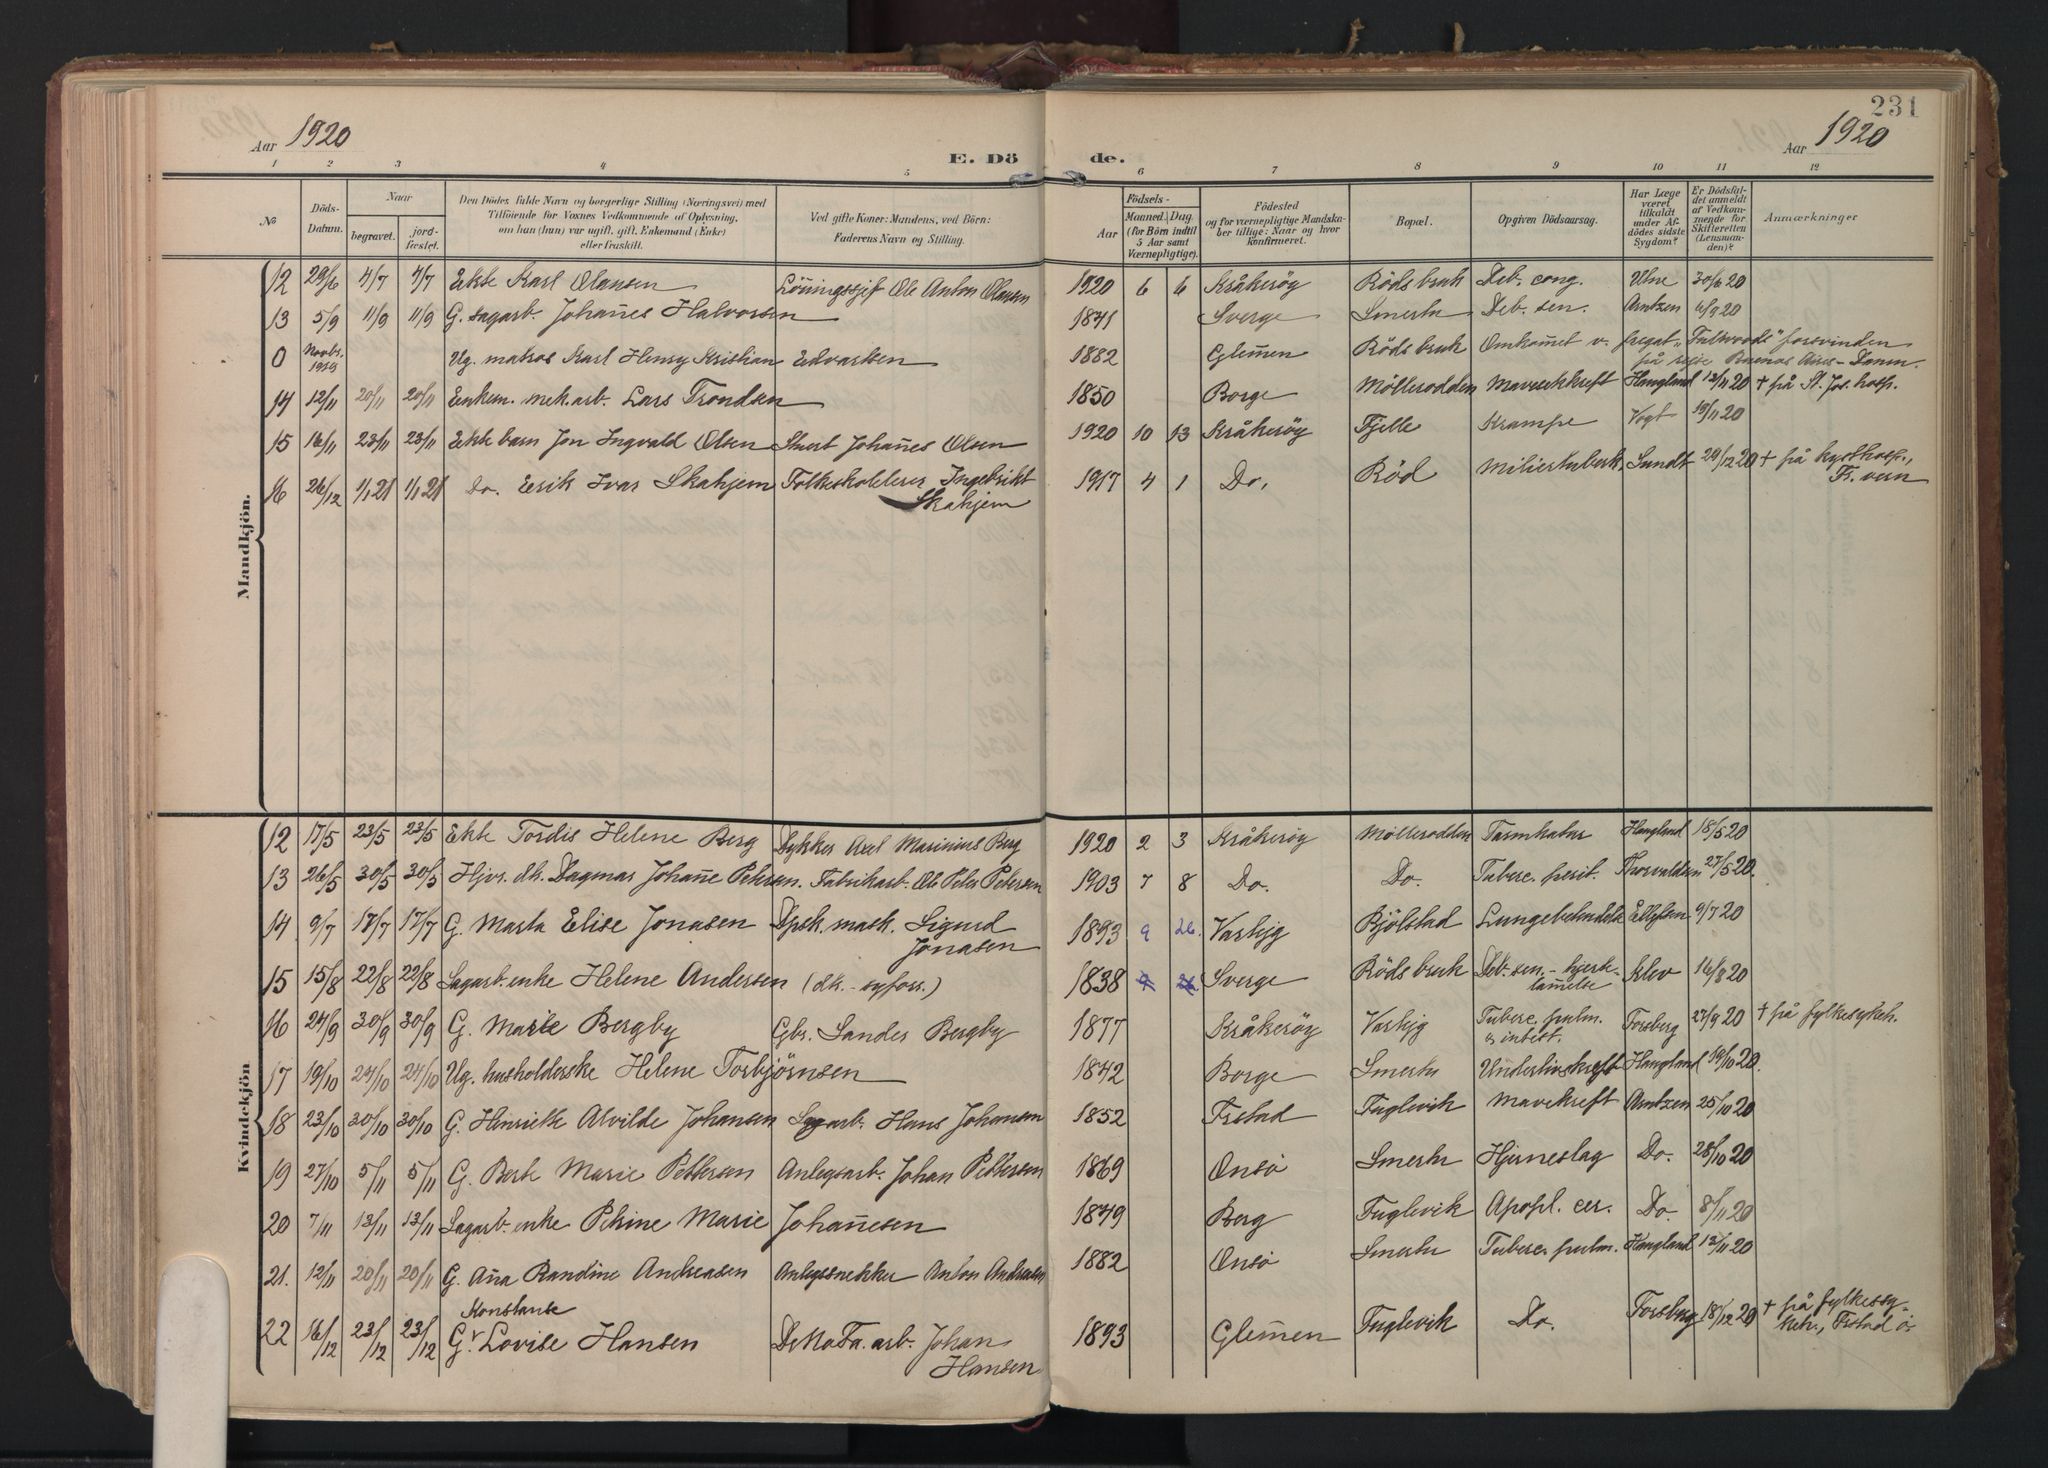 231
Aar 1920
E. Dö
de.
Aar 1920
1 2 3 4 5 6 7 8 9 10 11 12
№
Döds-Datum.
Naar
begravet.
jord-fæstet.
Den Dödes fulde Navn og borgerlige Stilling (Næringsvei) med
Tilföiende for Voxnes Vedkommende af Oplysning,
om han (hun) var ugift, gift, Enkemand (Enke)
eller fraskilt.
Ved gifte Koner: Mandens, ved Börn:
Faderens Navn og Stilling.
Födsels-
Aar
Maaned. Dag.
(for Börn indtil
5 Aar samt
Værnepligtige).
Födested
og for værnepligtige Mandska-
ber tillige: Naar og hvor
konfirmeret.
Bopæl.
Opgiven Dödsaarsag.
Har Læge
været
tilkaldt
under Af-
dödes sidste
Sygdom?
Er Dödsfal-
det anmeldt
af Vedkom-
mende for
Skifteretten
(Lensman-
den)?
Anmærkninger
Mandkjön.
12 29/6 4/7 4/7 Ekte Karl Olansen Lönningssjef Ole Anton Olansen 1920 6 6 Kråkeröy Röds bruk Deb. cong. 30/6 20
13 5/9 11/9 11/9 G. sagarb. Johannes Halvorsen 1841 Sverge Smertu Deb. sen. Arntzen 6/9 20
0 Novbr. 1919 Ug. matros Karl Henry Kristian Edvartsen 1882 Glemmen Röds bruk Omkommet v. fregat „Falwoods" forsvinden
på reise Buenos Aires – Danm.
14 12/11 20/11 20/11 Enkem. mek. arb. Lars Trondsen 1850 Borge Möllerodden Mavesekkreft Haugland 13/11 20 † på St. Jos. hosp.
15 16/11 23/11 23/11 Ekte barn Jon Ingvald Olsen Stuert Johannes Olsen 1920 10 13 Kråkeröy Fjelle Krampe Vogt 19/11 20
16 26/12 1/1 21 1/1 21 Do. Eerik Ivar Skahjem Folkeskolelærer Ingebrikt
Skahjem 1917 4 1 Do. Röd Miliertuberk. Sundt 29/12 20 † på kysthosp.,
Fr. vern
Kvindekjön
12 17/5 23/5 23/5 Ekte Tordis Helene Berg Dykker Axel Marinius Berg 1920 2 3 Kråkeröy Möllerodden Tarmkatar Haugland 18/5 20
13 26/5 30/5 30/5 Hjvr. dk. Dagmar Johanne Petersen. Fabrikarb. Ole Peter Petersen 1903 7 8 Do. Do. Tuberc. perit. Thorvaldsen 27/5 20.
14 9/7 17/7 17/7 G. Marta Elise Jonasen Dpsk. mask. Sigurd
Jonasen 1893 9 26. Varhjg Bjölstad Lungebetendelse Ellefsen 9/7 20
15 15/8 22/8 22/8 Sagarb. enke Helene Andersen (dk. – syfors.) 1838 Sverge Röds bruk Deb. sen. – hjerte-
lammelse Klev 16/8 20
16 24/9 30/9 30/9 G. Marie Bergby Gbr. Sander Bergby 1877 Kråkeröy Varhjg Tuberc. pulm.
& intest. Forsberg 27/9 20 † på fylkesykeh.
17 19/10 24/10 24/10 Ug. husholderske Helene Torbjörnsen 1842 Borge Smertu Underlivskreft Haugland 19/10 20.
18 23/10 30/10 30/10 G. Henriette Alvilde Johansen Sagarb. Hans Johansen 1852 Frstad Fuglevik Mavekreft Arntzen 25/10 20
19 27/10 5/11 5/11 G. Berte Marie Pettersen Anlegsarb. Johan Pettersen 1869 Onsö Smertu Hjerneslag Do. 28/10 20
20 7/11 13/11 13/11 Sagarb. enke Petrine Marie Johannesen 1849 Berg Fuglevik Apopl. cer. Do. 8/11 20
21. 12/11 20/11 20/11 G. Anna Randine Andreasen Anlegssnekker Anton Andreasen 1882 Onsö Smertu Tuberc. pulm. Haugland 13/11 20
Konstanse
22 16/12 23/12 23/12 G. Lovise Hansen DeNoFa. arb. Johan
Hansen 1893 Glemmen Fuglevik Do. Forsberg 18/12 20 † på fylkessy-
keh., Frstad ö.